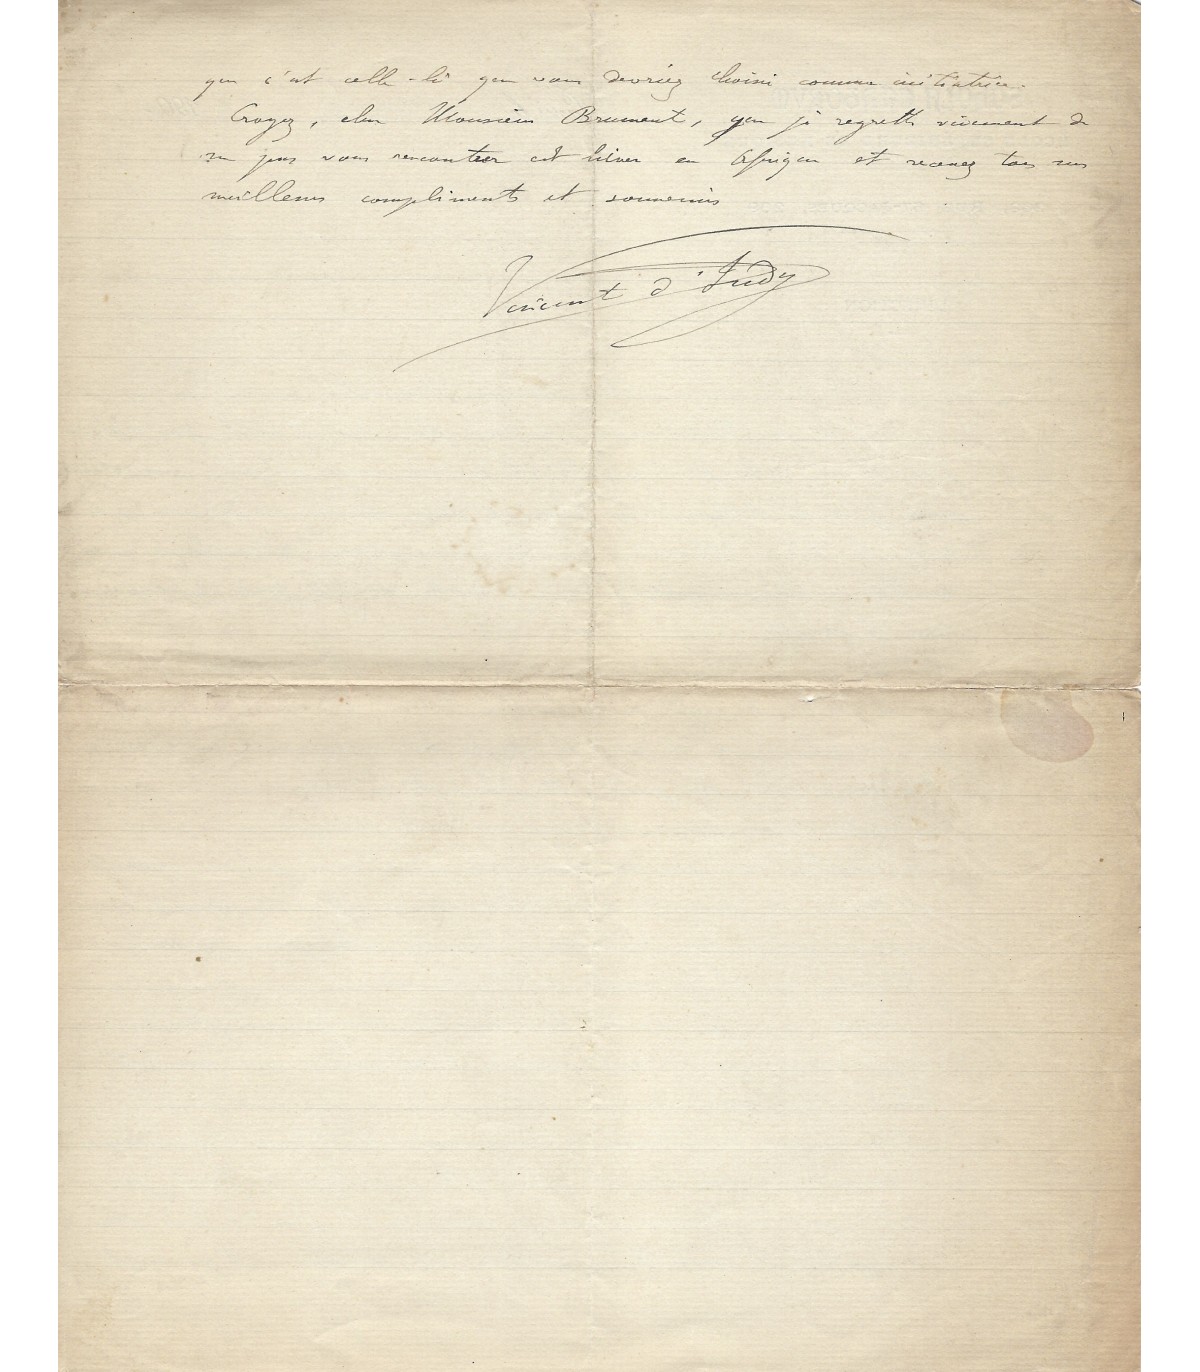 que c'est celle-là que vous devriez choisir comme initiatrice.
Croyez, cher Monsieur Brument, que je regrette vivement de
ne pas vous rencontrer cet hiver en Afrique et recevez tous mes
meilleurs compliments et souvenirs
Vincent d'Indy